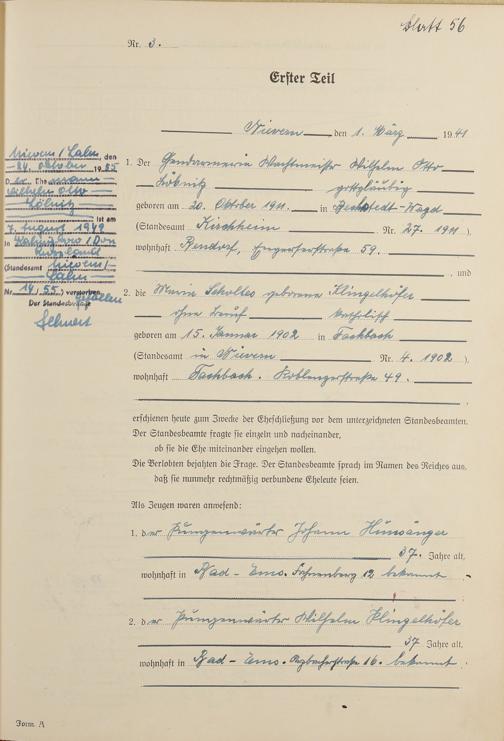 Blatt 56
Nr. 3.
Erster Teil
Nievern, den 1. März 1941
1. Der Gendarmerie Wachtmeister Wilhelm Otto
Lölnitz gottgläubig
geboren am 20. Oktober 1911. in
(Standesamt Kirchheim Nr. 27. 1911)
wohnhaft Bendorf, Engerserstraße 59.
, und
2. die Maria Scholtes geborene Klingelhöfer
ohne Beruf katholisch
geboren am 15. Januar 1902 in Fachbach
(Standesamt in Nievern Nr. 4. 1902)
wohnhaft Fachbach. Koblenzerstraße 49.
erschienen heute zum Zwecke der Eheschließung vor dem unterzeichneten Standesbeamten.
Der Standesbeamte fragte sie einzeln und nacheinander,
ob sie die Ehe miteinander eingehen wollen.
Die Verlobten bejahten die Frage. Der Standesbeamte sprach im Namen des Reiches aus,
daß sie nunmehr rechtmäßig verbundene Eheleute seien.
Als Zeugen waren anwesend:
1. der Johann Hünsänger
37. Jahre alt,
wohnhaft in Bad-Ems. 12 bekannt.
2. der Wilhelm Klingelhöfer
37 Jahre alt,
wohnhaft in Bad-Ems. 16. bekannt.
Form. A
Nievern/Lahn, den
24. Oktober 1955
Der Ehemann
Wilhelm Otto
Lölnitz
ist am
7. August 1942
in
Rußland
(Standesamt Nievern/
Lahn
Nr. 19/55) verstorben
gefallen
Der Standesbeamte